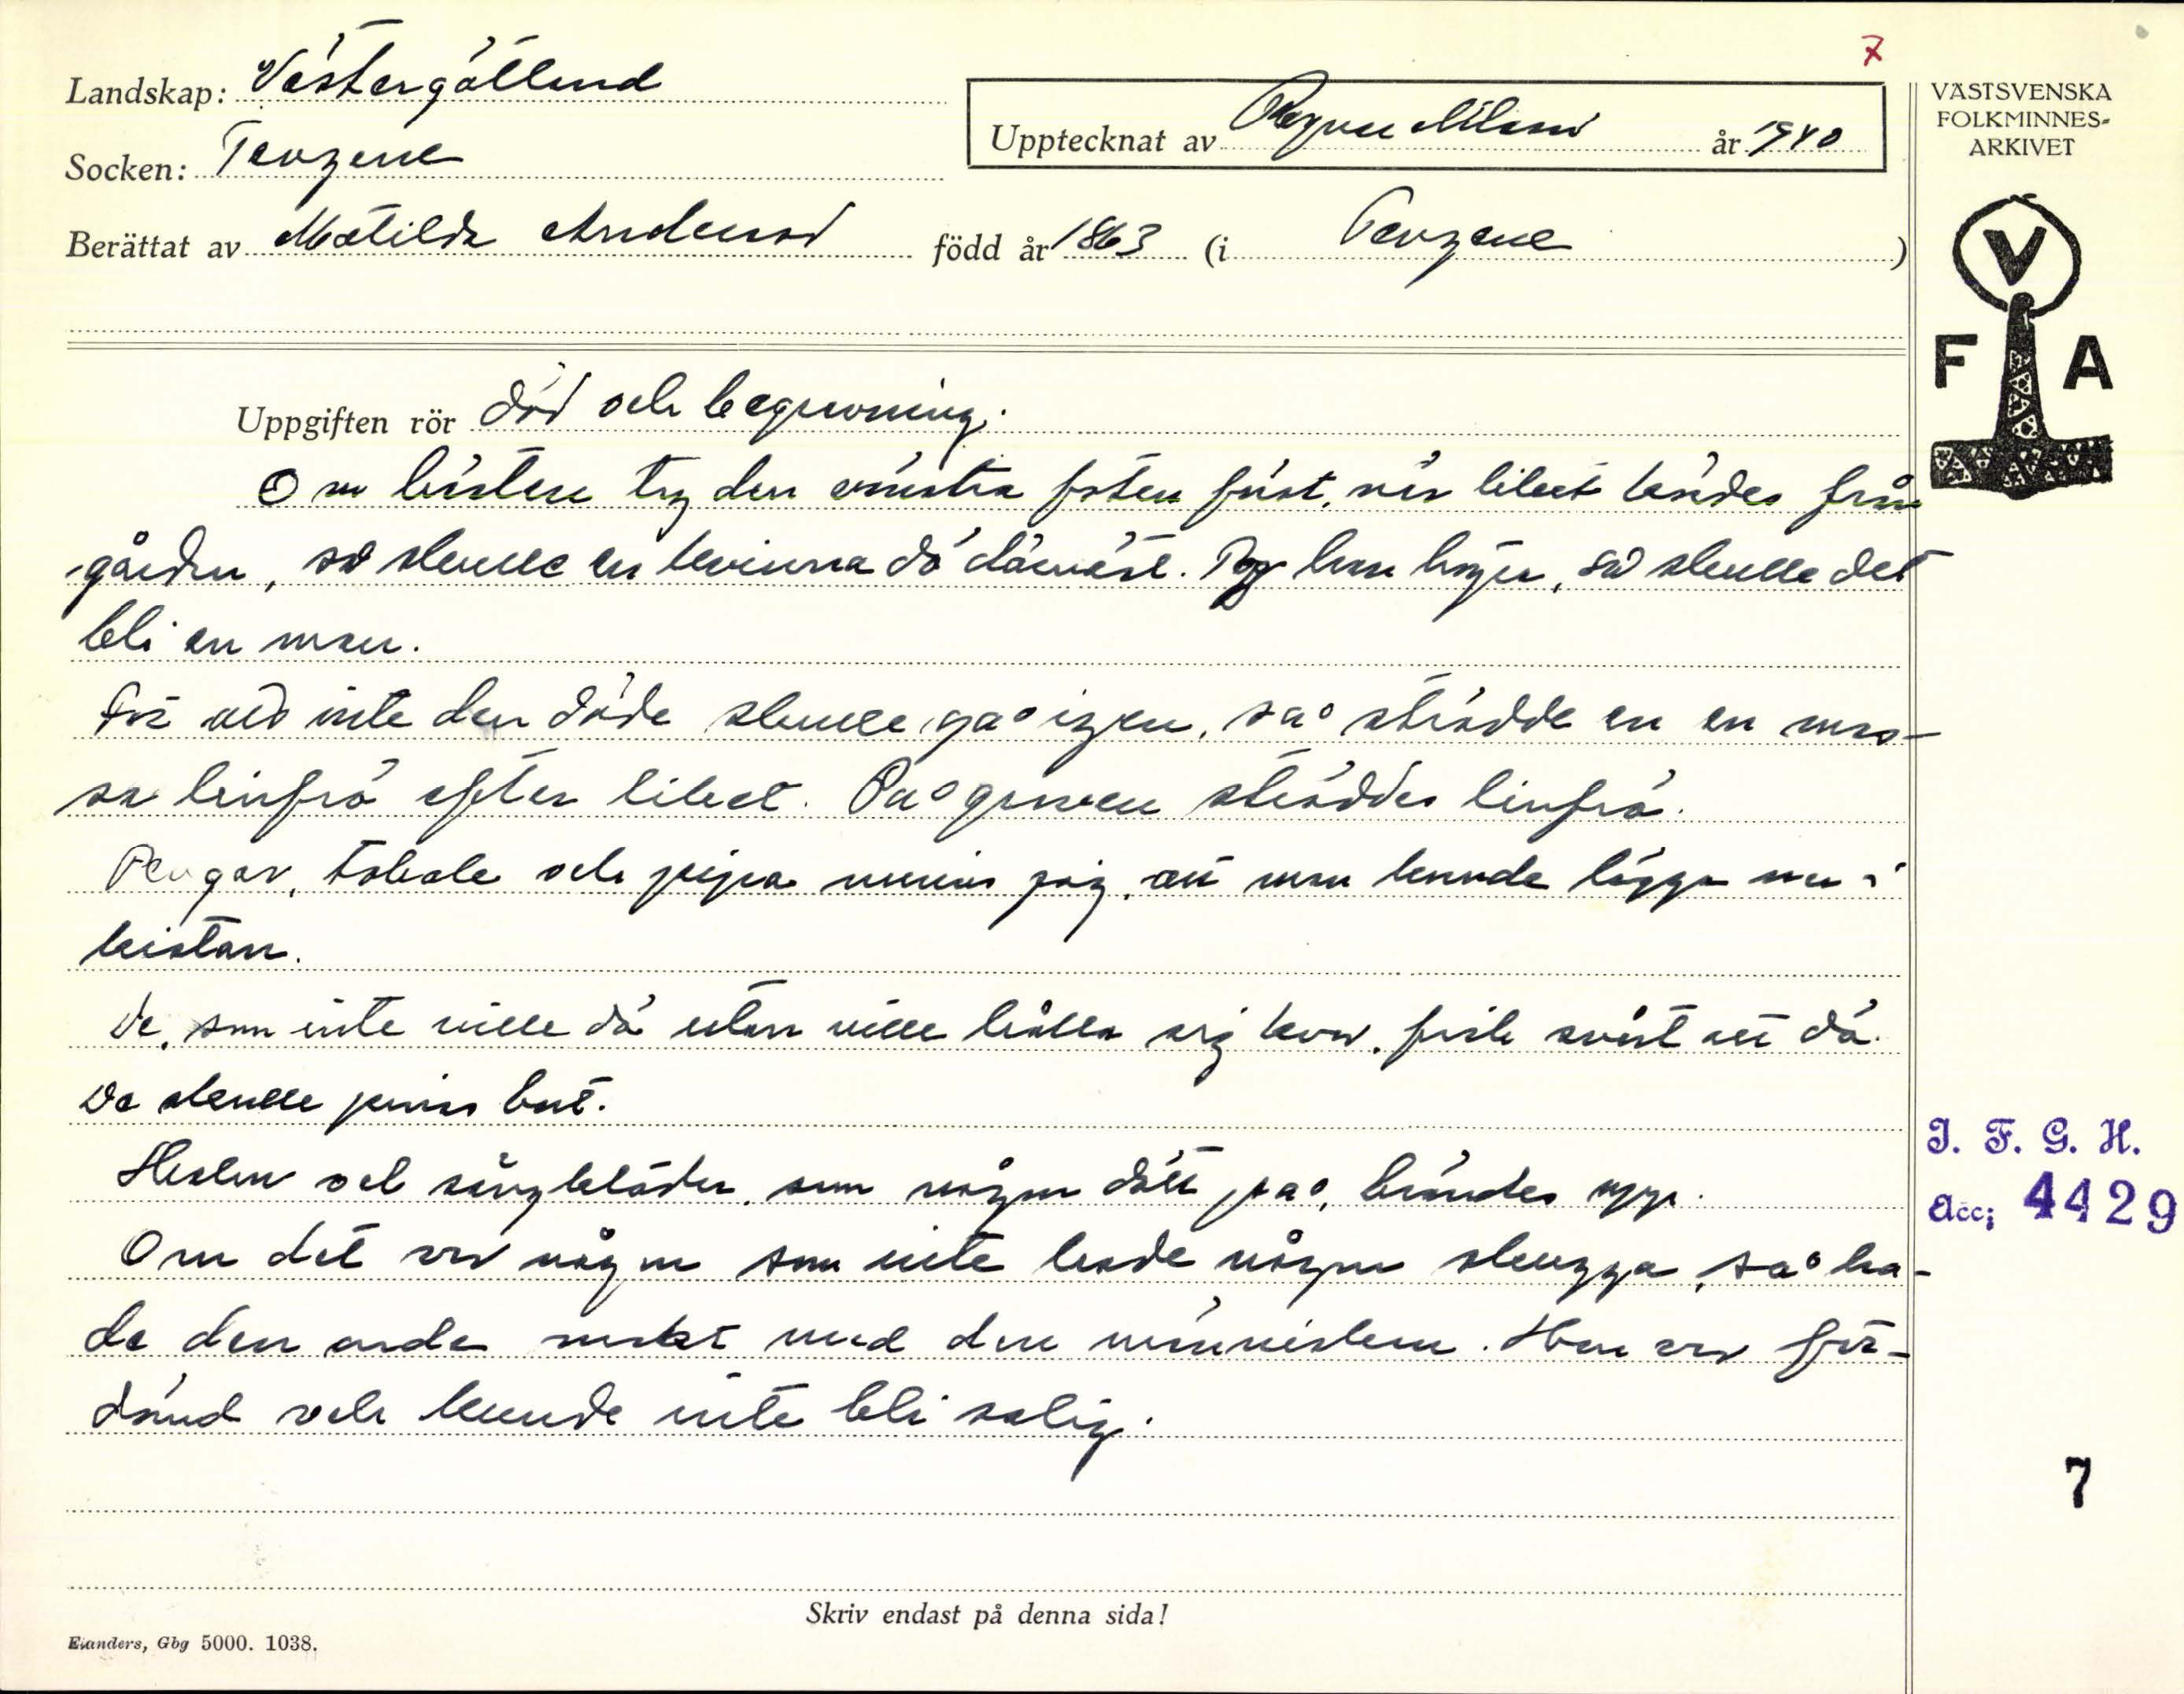 7
Landskap: Västergötland
Upptecknat av Ragnar Nilsson år 1940
Socken: Tengene
Berättat av Matilda Andersson född år 1863 (i Tengene)
VÄSTSVENSKA
FOLKMINNES-
ARKIVET
V
F A
Uppgiften rör död och begravning.
Om hästen tog den vänstra foten först, när liket kördes från
gården, så skulle en kvinna dö därnäst. Tog han höger, så skulle det
bli en man.
För att inte den döde skulle gå igen, så strödde en en mas-
sa linfrö efter liket. På graven ströddes linfrö.
Pengar, tobak och pipa minns jag, att man kunde lägga ner i
kistan.
De, som inte ville dö utan ville hålla sig kvar, fick svårt att dö.
De skulle pinas bort.
Halm och sängkläder, som någon dött på, brändes upp.
Om det var någon som inte hade någon skugga, så ha-
de den onde makt med den människan. Han var för-
dömd och kunde inte bli salig.
I. F. G. H.
Acc; 4429
7
Skriv endast på denna sida!
Elanders, Gbg 5000. 1038.